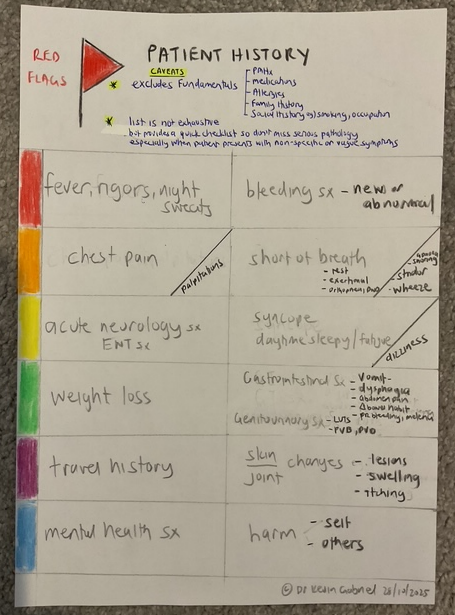 RED
FLAGS
PATIENT HISTORY
CAVEATS
* excludes fundamentals
PMHx
medications
Allergies
Family History
Social History eg) smoking, occupation
* list is not exhaustive
but provides a quick checklist so don't miss serious pathology
especially when patient presents with non-specific or vague symptoms
fever, rigors, night
sweats
bleeding sx - new or
abnormal
chest pain
palpitations
short of breath
- rest
- exertional
- orthopnea, PND
- snoring
- stridor
- wheeze
acute neurology sx
ENT sx
syncope
daytime sleepy/fatigue
dizziness
weight loss
Gastrointestinal sx - vomit
- dysphagia
- abdomen pain
- Δ bowel habit
- PR bleeding, melena
Genitourinary sx - LUTS
- PVB, PVD
travel history
skin
joint
changes - lesions
- swelling
- itching
mental health sx
harm - self
- others
© Dr Kevin Gabriel 28/10/2025